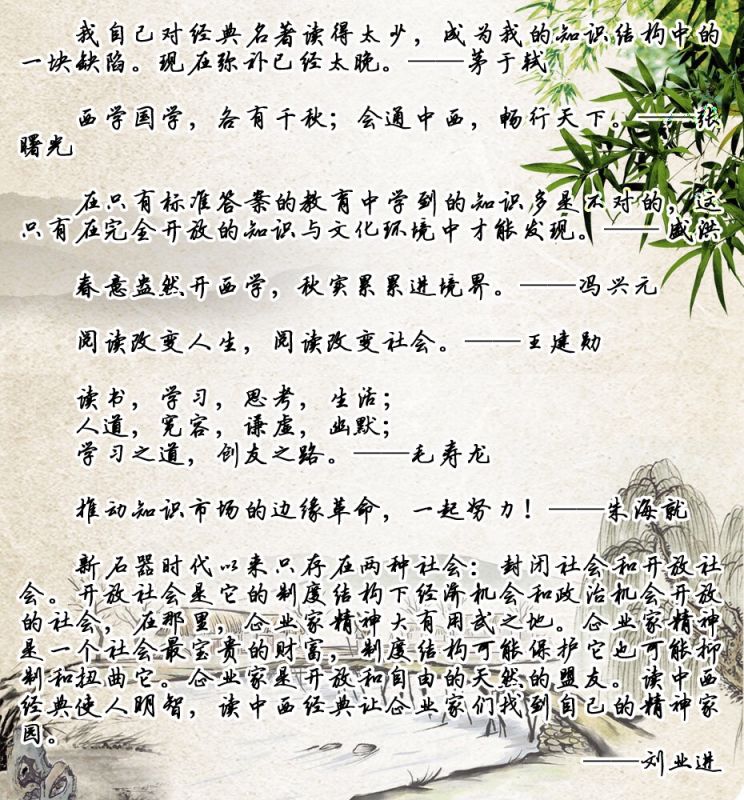 我自己对经典名著读得太少，成为我的知识结构中的
一块缺陷。现在弥补已经太晚。——茅于轼
西学国学，各有千秋；会通中西，畅行天下。——张
曙光
在只有标准答案的教育中学到的知识多是不对的，这
只有在完全开放的知识与文化环境中才能发现。——盛洪
春意盎然开西学，秋实累累进境界。——冯兴元
阅读改变人生，阅读改变社会。——王建勋
读书，学习，思考，生活；
人道，宽容，谦虚，幽默；
学习之道，创友之路。——毛寿龙
推动知识市场的边缘革命，一起努力！——朱海就
新石器时代以来只存在两种社会：封闭社会和开放社
会。开放社会是它的制度结构下经济机会和政治机会开放
的社会，在那里，企业家精神大有用武之地。企业家精神
是一个社会最宝贵的财富，制度结构可能保护它也可能抑
制和扭曲它。企业家是开放和自由的天然的盟友。读中西
经典使人明智，读中西经典让企业家们找到自己的精神家
园。
——刘业进